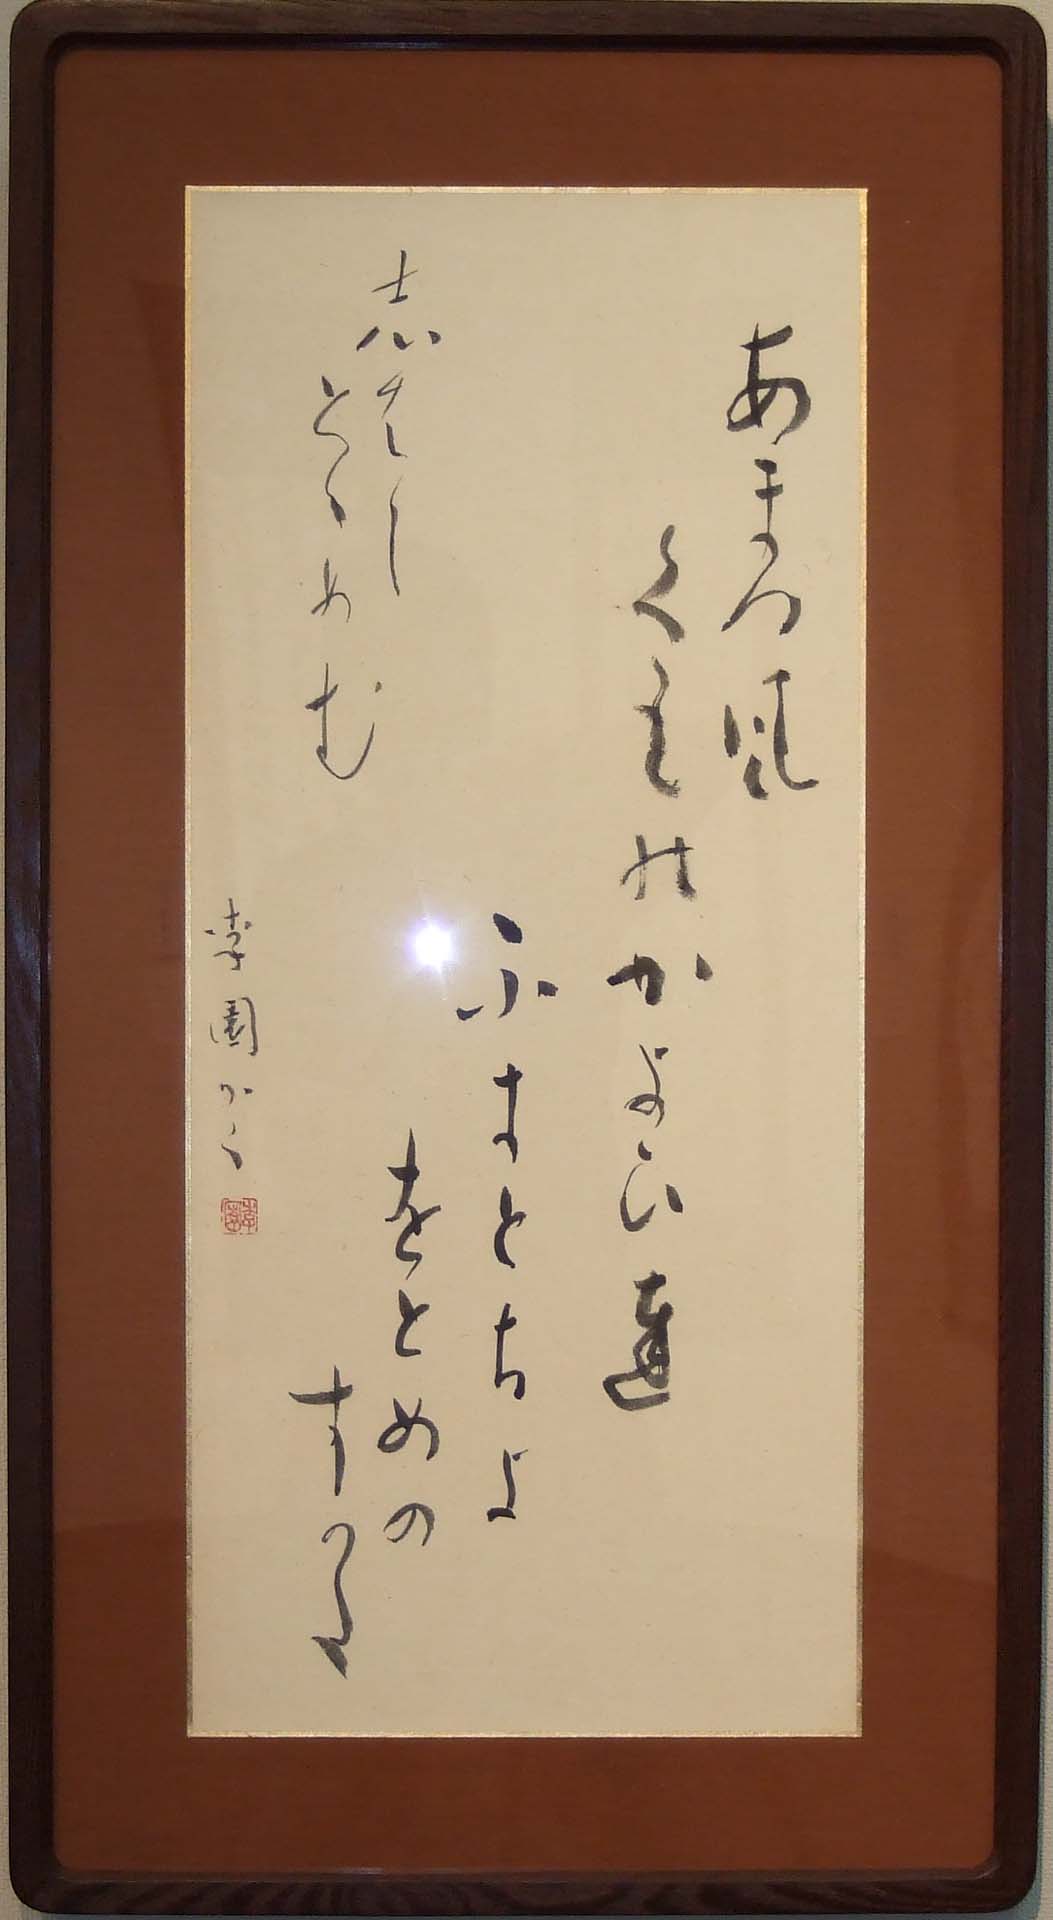 あまつ風
くものかよひ
ふきとちよ
をとめの
すかた
志はし
とゝめむ
孝園かく